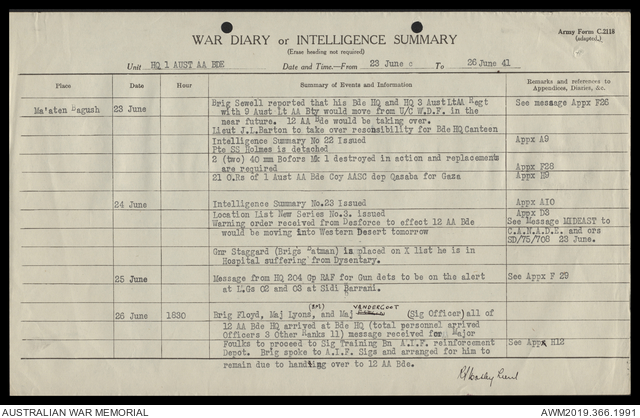 WAR DIARY or INTELLIGENCE SUMMARY
(Erase heading not required)
Army Form C.2118
(adapted.)
Unit HQ 1 AUST AA BDE Date and Time.—From 23 June To 26 June 41
Place Date Hour Summary of Events and Information Remarks and references to Appendices, Diaries, &c.
Ma'aten Bagush 23 June Brig Sewell reported that his Bde HQ and HQ 3 Aust LtAA Regt See message Appx F26
with 9 Aust Lt AA Bty would move from U/C W.D.F. in the
near future. 12 AA Bde would be taking over.
Lieut J.L.Barton to take over responsibility for Bde HQ Canteen
Intelligence Summary No 22 Issued Appx A9
Pte SS Holmes is detached
2 (two) 40 mm Bofors Mk 1 destroyed in action and replacements
are required Appx F28
21 O.Rs of 1 Aust AA Bde Coy AASC dep Qasaba for Gaza Appx H9
24 June Intelligence Summary No.23 Issued Appx A10
Location List New Series No.3. issued Appx D3
Warning order received from Desforce to effect 12 AA Bde See Message MIDEAST to
would be moving into Western Desert tomorrow C.A.N.A.D.E. and ors
SD/75/708 23 June.
Gnr Staggard (Brigs Batman) is placed on X list he is in
Hospital suffering from Dysentary.
25 June Message from HQ 204 Gp RAF for Gun dets to be on the alert See Appx F 29
at L.Gs 02 and 03 at Sidi Barrani.
26 June 1830 Brig Floyd, Maj Lyons, (BM) and Maj VANDERCOOT (Sig Officer) all of
12 AA Bde HQ arrived at Bde HQ (total personnel arrived
Officers 3 Other Ranks 11) message received for Major
Foulks to proceed to Sig Training Bn A.I.F. reinforcement See Appx H12
Depot. Brig spoke to A.I.F. Sigs and arranged for him to
remain due to handing over to 12 AA Bde.
AUSTRALIAN WAR MEMORIAL AWM2019.366.1991